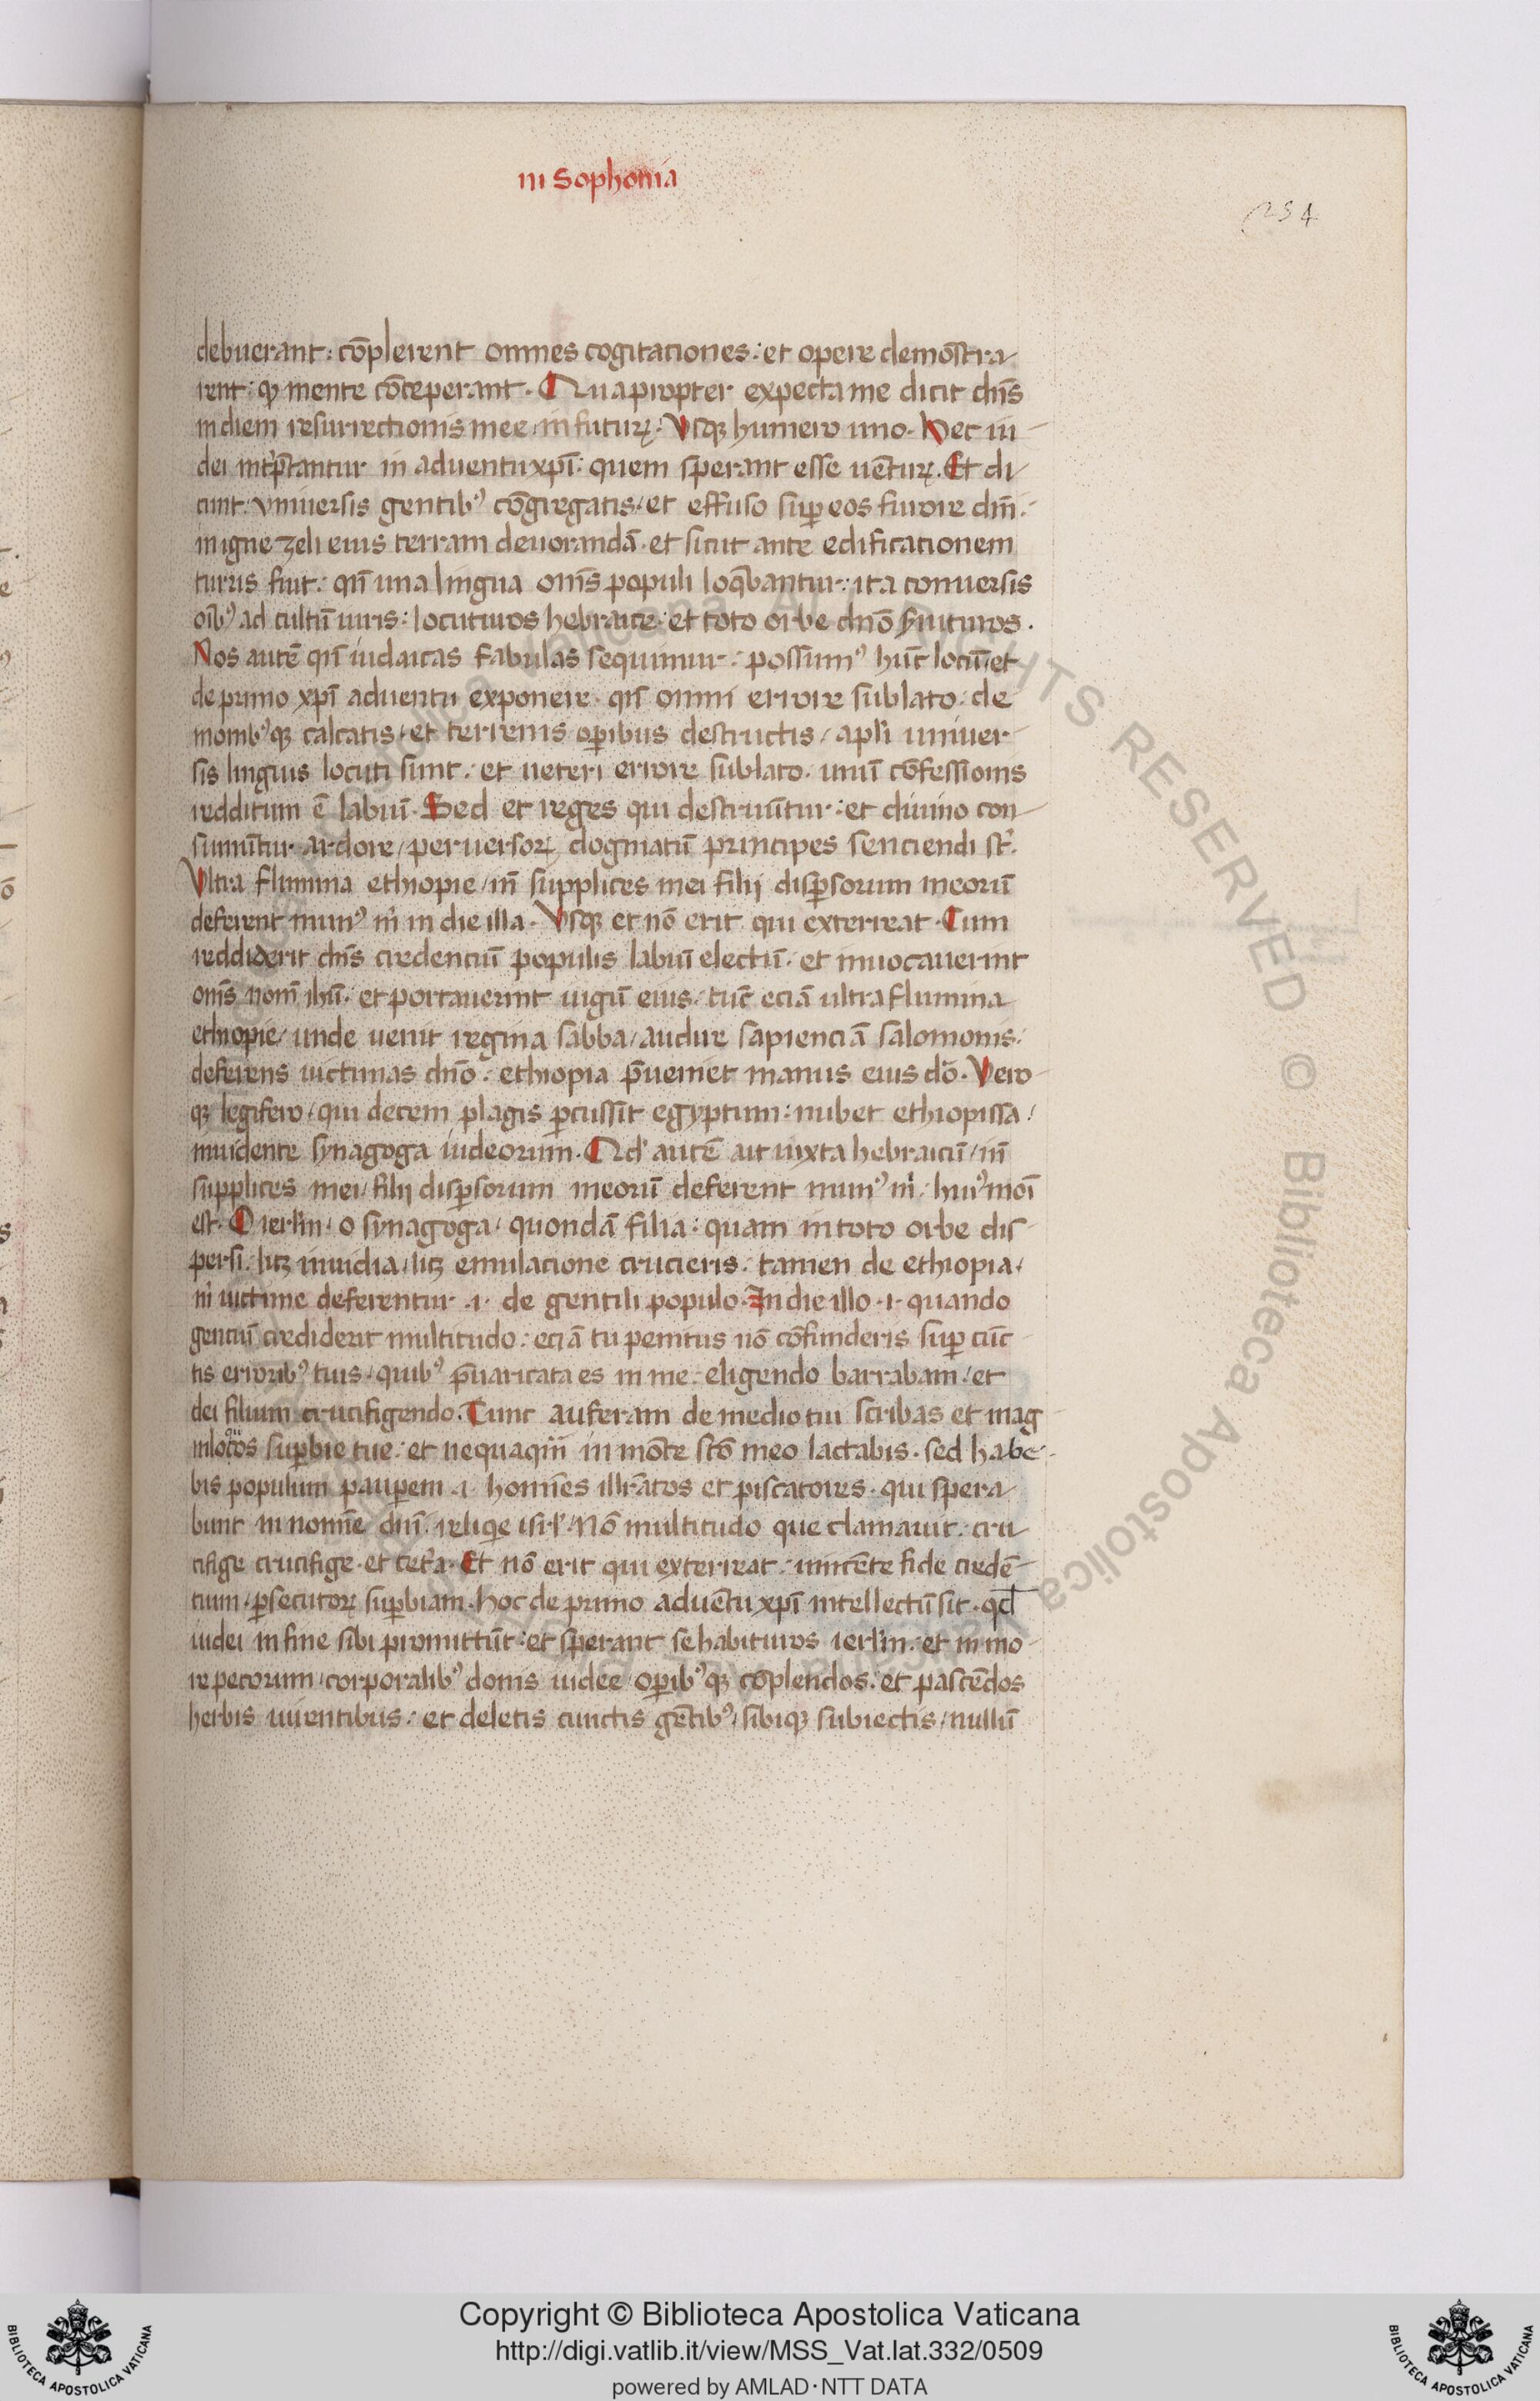 in Sophonia
254
debuerant: cōplerent omnes cogitationes: et opere demōstra-
rent: qꝫ mente cōceperant. Quapropter expecta me dicit dn̄s
in diem resurrectionis mee in futurꝝ. Vsqꝫ humero uno. Hec iu-
dei int̄p̄tantur in aduentu xp̄i: quem sperant esse uēturꝝ. Et di-
cunt: vniuersis gentibꝰ cōgregatis, et effuso suꝑ eos furore dn̄i:
in igne zeli eius terram deuorandā. et sicut ante edificationem
turris fuit: qn̄ una lingua om̄s populi loq̄bantur: ita conuersis
oībꝰ ad cultū ueris: locuturos hebraice: et toto orbe dn̄o s̄uituros.
Nos autē qn̄ iudaicas fabulas sequimur: possumꝰ hūc locū, et
de primo xp̄i aduentu exponere. qn̄ omni errore sublato. de
monibꝰqꝫ calcatis, et terrenis oꝑibus destructis, apl̄i uniuer-
sis linguis locuti sunt: et ueteri errore sublato. unū cōfessionis
redditum ē labiū. Sed et reges qui destruūtur: et diuino con-
sumūtur ardore, peruersoꝝ dogmatū principes senciendi st̄.
Vltra flumina ethiopie, in̄ supplices mei filij disꝑsorum meorū
deferent munꝰ m̄ in die illa. Vsqꝫ et nō erit qui exterreat. Cum
reddiderit dn̄s credenciū populis labiū electū. et inuocauerint
om̄s nom̄ ih̄u: et portauerint iugū eius. tūc eciā ultra flumina
ethiopie, unde uenit regina sabba, audire sapienciā salomonis.
deferens uictimas dn̄o: ethiopia p̄ueniet manus eius dō. Vero
qꝫ legifero, qui decem plagis ꝑcussit egyptum: nubet ethiopissa,
inuidente synagoga iudeorum. Qd̄ autē ait iuxta hebraicū, in̄
supplices mei, filij disꝑsorum meorū deferent munꝰ m̄, huiꝰmōi
est. O ierl̄m, o synagoga, quondā filia: quam in toto orbe dis-
persi. licꝫ inuidia, licꝫ emulacione crucieris: tamen de ethiopia,
m̄ uictime deferentur .i. de gentili populo. In die illo .i. quando
genciū crediderit multitudo: eciā tu penitus nō cōfunderis suꝑ cūc-
tis erroribꝰ tuis, quibꝰ p̄uaricata es in me: eligendo barrabam, et
dei filium crucifigendo. Tunc auferam de medio tui scribas et mag
niloq̄os suꝑbie tue: et nequaqm̄ in mōte sc̄o meo iactabis. sed habe-
bis populum pauꝑem .i. homīes illr̄atos et piscatores. qui spera-
bunt in nomīe dn̄i. reliqīe isrl̄. Nō multitudo que clamauit: cru-
cifige crucifige. et cet̄a. Et nō erit qui exterreat: uincēte fide credē-
tium, ꝑsecutoꝝ suꝑbiam. Hoc de primo aduētu xp̄i intellectū sit. qd̄
iudei in fine sibi promittūt: et sperant se habituros ierl̄m: et in mo-
re pecorum, corporalibꝰ donis iudee, oꝑibꝰqꝫ cōplendos: et pascēdos
herbis uirentibus: et deletis cunctis gētibꝰ, sibiqꝫ subiectis, nullū
ALL RIGHTS RESERVED © Biblioteca Apostolica Vaticana
BIBLIOTECA APOSTOLICA VATICANA
Copyright © Biblioteca Apostolica Vaticana
http://digi.vatlib.it/view/MSS_Vat.lat.332/0509
powered by AMLAD·NTT DATA
BIBLIOTECA APOSTOLICA VATICANA